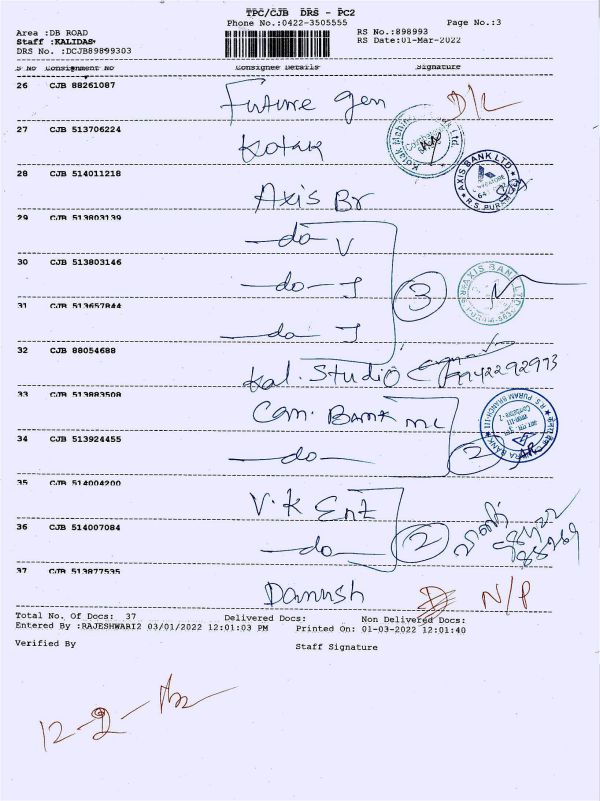 TPC/CJB DRS - PC2
Phone No.:0422-3505555 Page No.:3
Area :DB ROAD RS No.:898993
Staff :KALIDAS RS Date:01-Mar-2022
DRS No. :DCJB89899303
S No Consignment No Consignee Details Signature
26 CJB 88261087 Future gen D/L
27 CJB 513706224 Kotak
28 CJB 514011218 Axis Br
29 CJB 513803139 -do- V
30 CJB 513803146 -do- J 3
31 CJB 513657844 -do- J
32 CJB 88054688 Kal. Studio 9942292993
33 CJB 513883508 Can. Bank ML
34 CJB 513924455 -do- 2
35 CJB 514004200 V.K Ent
36 CJB 514007084 -do- 2
37 CJB 513877535 Danush D N/P
Total No. Of Docs: 37 Delivered Docs: Non Delivered Docs:
Entered By :RAJESHWARI2 03/01/2022 12:01:03 PM Printed On: 01-03-2022 12:01:40
Verified By Staff Signature
AXIS BANK LTD
R.S. PURAM
AXIS BANK LTD
R S PURAM BRANCH-III